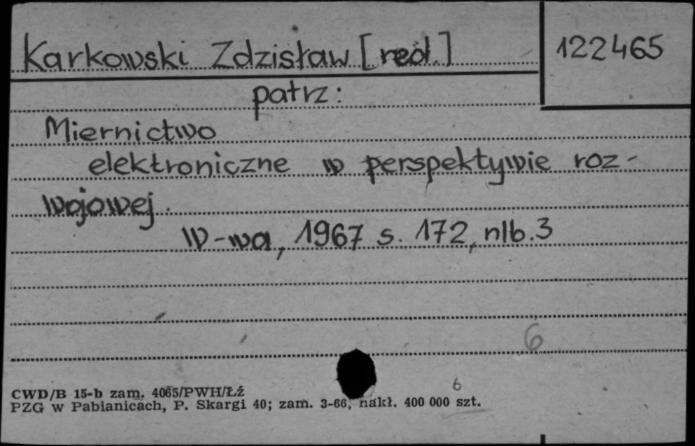 Karkowski Zdzisław [red.] 122465
patrz:
Miernictwo
elektroniczne w perspektywie roz-
wojowej.
W-wa, 1967 s. 172, nlb. 3
6
CWD/B 15-b zam. 4065/PWH/Łź
6
PZG w Pabianicach, P. Skargi 40; zam. 3-66, nakł. 400 000 szt.